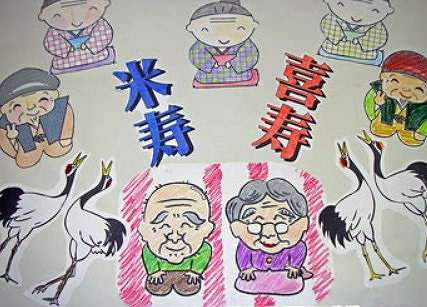 米寿
喜寿